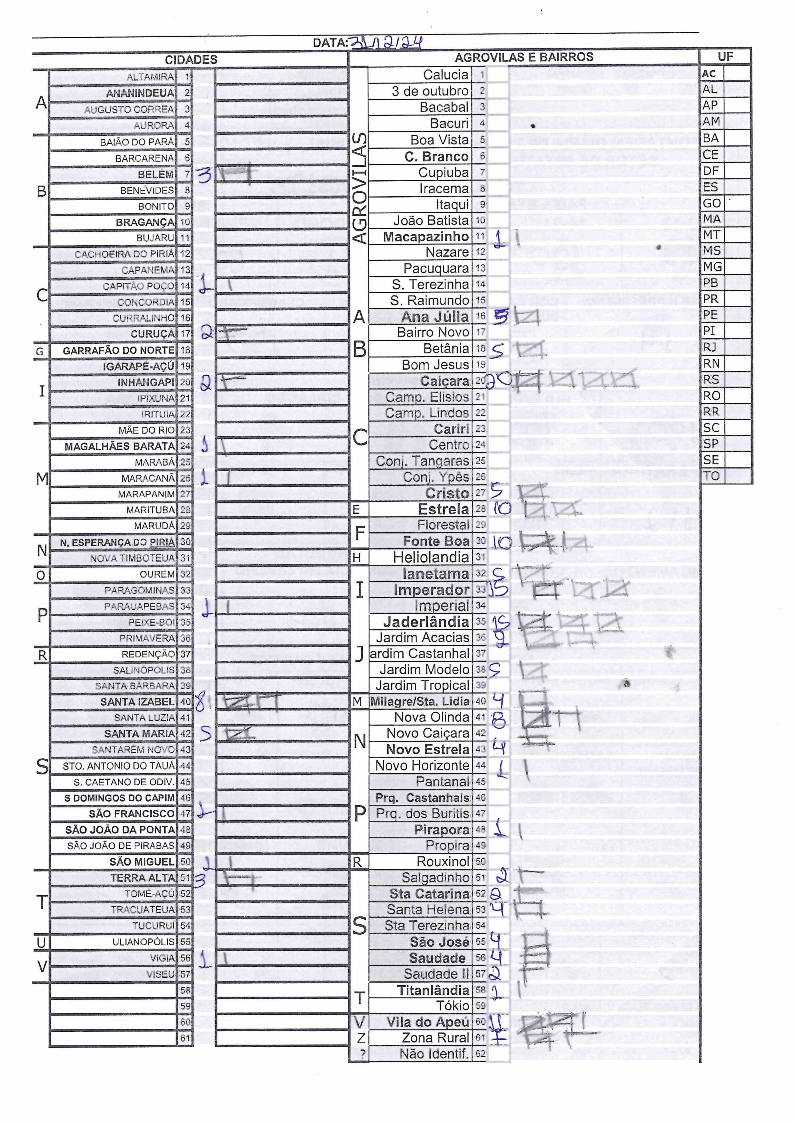 DATA: 31/12/24
CIDADES
A
ALTAMIRA 1
ANANINDEUA 2
AUGUSTO CORREA 3
AURORA 4
B
BAIÃO DO PARÁ 5
BARCARENA 6
BELÉM 7 3
BENEVIDES 8
BONITO 9
BRAGANÇA 10
BUJARU 11
C
CACHOEIRA DO PIRIÁ 12
CAPANEMA 13
CAPITÃO POÇO 14 1
CONCORDIA 15
CURRALINHO 16
CURUÇA 17 2
G
GARRAFÃO DO NORTE 18
I
IGARAPÉ-AÇÚ 19
INHANGAPI 20 2
IPIXUNA 21
IRITUIA 22
M
MÃE DO RIO 23
MAGALHÃES BARATA 24 1
MARABÁ 25
MARACANÃ 26 1
MARAPANIM 27
MARITUBA 28
MARUDÁ 29
N
N. ESPERANÇA DO PIRIÁ 30
NOVA TIMBOTEUA 31
O
OUREM 32
P
PARAGOMINAS 33
PARAUAPEBAS 34 1
PEIXE-BOI 35
PRIMAVERA 36
R
REDENÇÃO 37
S
SALINÓPOLIS 38
SANTA BÁRBARA 39
SANTA IZABEL 40 8
SANTA LUZIA 41
SANTA MARIA 42 5
SANTARÉM NOVO 43
STO. ANTONIO DO TAUÁ 44
S. CAETANO DE ODIV. 45
S DOMINGOS DO CAPIM 46
SÃO FRANCISCO 47 1
SÃO JOÃO DA PONTA 48
SÃO JOÃO DE PIRABAS 49
SÃO MIGUEL 50 1
T
TERRA ALTA 51 3
TOMÉ-AÇÚ 52
TRACUATEUA 53
TUCURUI 54
U
ULIANOPÓLIS 55
V
VIGIA 56 1
VISEU 57
58
59
60
61
AGROVILAS E BAIRROS
AGROVILAS
Calucia 1
3 de outubro 2
Bacabal 3
Bacuri 4
Boa Vista 5
C. Branco 6
Cupiuba 7
Iracema 8
Itaqui 9
João Batista 10
Macapazinho 11 1
Nazare 12
Pacuquara 13
S. Terezinha 14
S. Raimundo 15
A
Ana Júlia 16 5
B
Bairro Novo 17
Betânia 18 5
Bom Jesus 19
C
Caiçara 20 20
Camp. Elisios 21
Camp. Lindos 22
Cariri 23
Centro 24
Conj. Tangaras 25
Conj. Ypês 26
Cristo 27 5
E
Estrela 28 10
F
Florestal 29
Fonte Boa 30 10
H
Heliolandia 31
I
Ianetama 32 5
Imperador 33 15
Imperial 34
J
Jaderlândia 35 15
Jardim Acacias 36 9
ardim Castanhal 37
Jardim Modelo 38 5
Jardim Tropical 39
M
Milagre/Sta. Lidia 40 4
N
Nova Olinda 41 8
Novo Caiçara 42
Novo Estrela 43 4
Novo Horizonte 44 1
P
Pantanal 45
Prq. Castanhais 46
Prq. dos Buritis 47
Pirapora 48 1
Propira 49
R
Rouxinol 50
S
Salgadinho 51 2
Sta Catarina 52 2
Santa Helena 53 4
Sta Terezinha 54
São José 55 4
Saudade 56 4
Saudade II 57 2
T
Titanlândia 58 1
Tókio 59
V
Vila do Apeú 60 11
Z
Zona Rural 61
?
Não Identif. 62
UF
AC
AL
AP
AM
BA
CE
DF
ES
GO
MA
MT
MS
MG
PB
PR
PE
PI
RJ
RN
RS
RO
RR
SC
SP
SE
TO